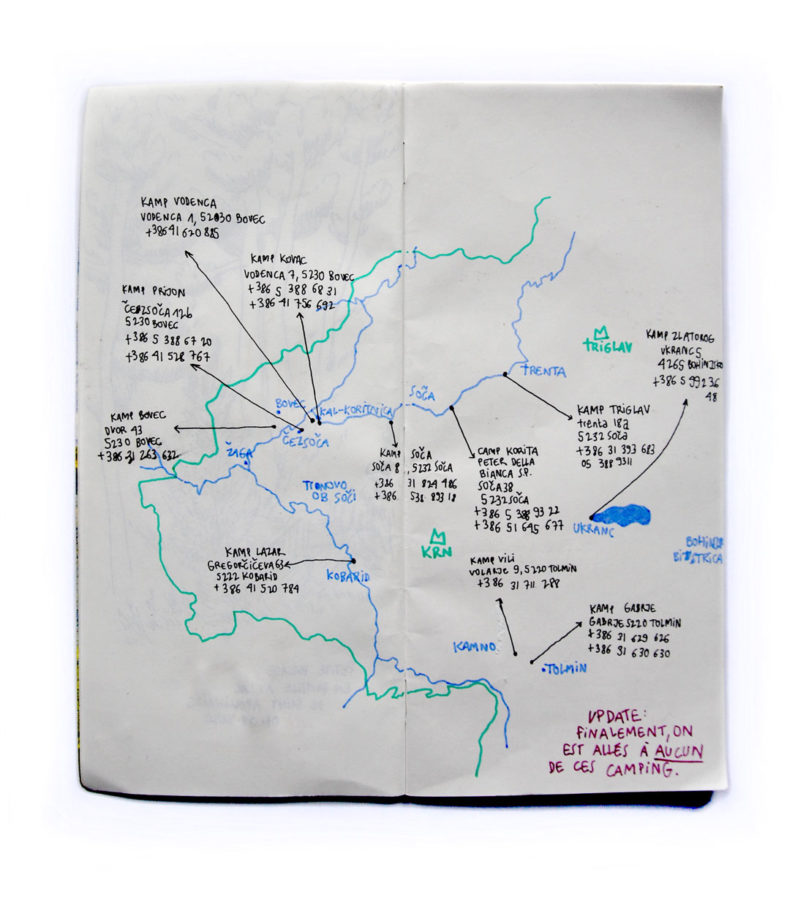 KAMP VODENCA
VODENCA 1, 52030 BOVEC
+386 41 620 885
KAMP KOVAC
VODENCA 7, 5230 BOVEC
+386 5 388 68 31
+386 41 756 692
KAMP PRIJON
5230 BOVEC
+386 5 388 67 20
+386 41 528 767
KAMP BOVEC
DVOR 43
5230 BOVEC
+386 31 263 632
KAMP ZLATOROG
UKRANC 5
+386 5 992 36
48
TRIGLAV
TRENTA
SOČA
BOVEC
KAL-KORITNICA
ČEZSOČA
ŽAGA
KAMP TRIGLAV
trenta 18a
5232 SOČA
+386 31 393 683
05 388 9311
KAMP SOČA
SOČA 8, 5232 SOČA
+386 31 824 486
+386 538 893 18
CAMP KORITA
PETER DELLA
BIANCA S.P.
SOČA 38
5232 SOČA
+386 5 388 93 22
+386 51 645 677
OB SOČI
UKRANC
KRN
BISTRICA
KAMP LAZAR
GREGORČIČEVA 63
5222 KOBARID
+386 41 520 784
KOBARID
KAMP VILI
VOLARJE 9, 5220 TOLMIN
+386 31 711 288
KAMP GABRJE
GABRJE 5220 TOLMIN
+386 31 629 626
+386 31 630 630
KAMNO
TOLMIN
UPDATE:
FINALEMENT, ON
EST ALLÉS À AUCUN
DE CES CAMPING.